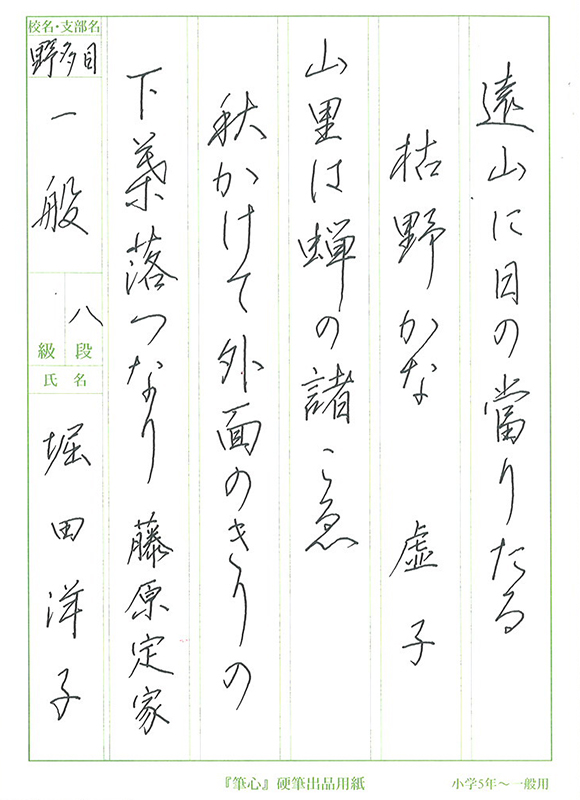 遠山に日の當りたる
枯野かな　虚子
山里は蝉の諸こゑ
秋かけて外面のきりの
下葉落つなり　藤原定家
校名・支部名
野多目
一般
八段
級
氏名
堀田洋子
『筆心』硬筆出品用紙
小学5年～一般用